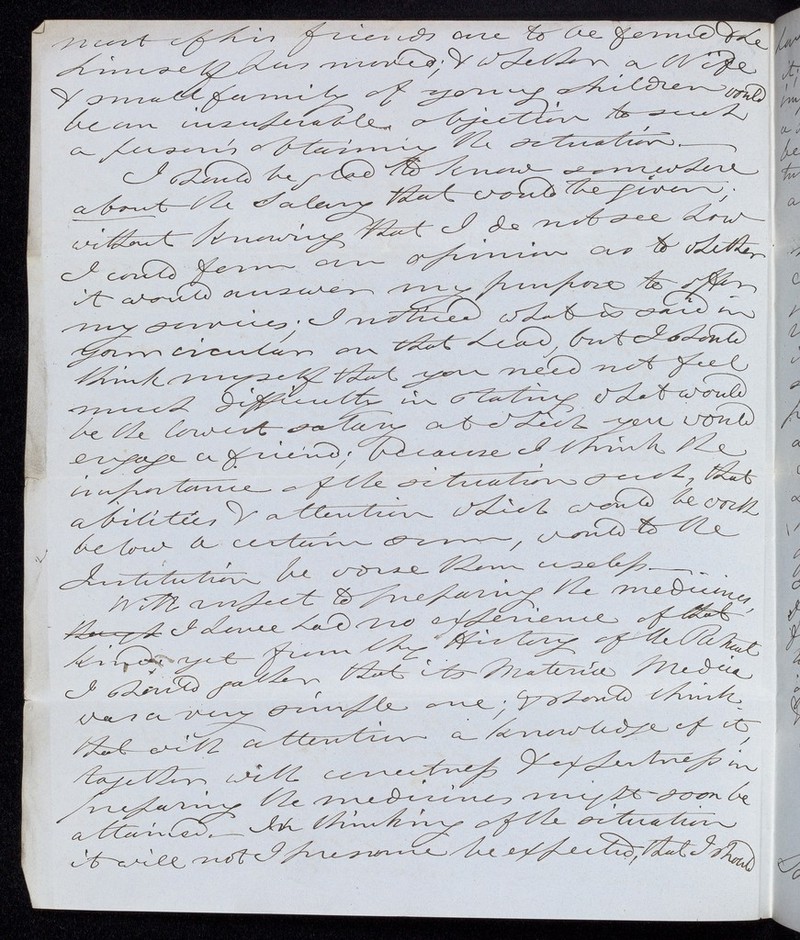 most of his friends are to be found & he
himself has moved; & whether a Wife
& small family of young children would
be an insuperable objection to such
a person's obtaining the situation.—
I should be glad to know somewhere
about the Salary that would be given;
without knowing that I do not see how
I could form an opinion as to whether
it would answer my purpose to offer
my services; I noticed what is said in
your circular on that head, but I should
think myself that you need not feel
much difficulty in stating what would
be the lowest salary at which you would
engage a friend; because I think the
importance of the situation such, that
abilities & attention which would be worth
below a certain sum, would to the
Institution be worse than useless.—
With respect to preparing the medicines,
though I have had no experience of that
kind, yet from thy History of the Retreat
I should gather that its Materia Medica
was a very simple one; & should think
that with attention a knowledge of it,
together with correctness & expertness in
preparing the medicines might soon be
attained.— In thinking of the situation
it will not I presume be expected, that I should